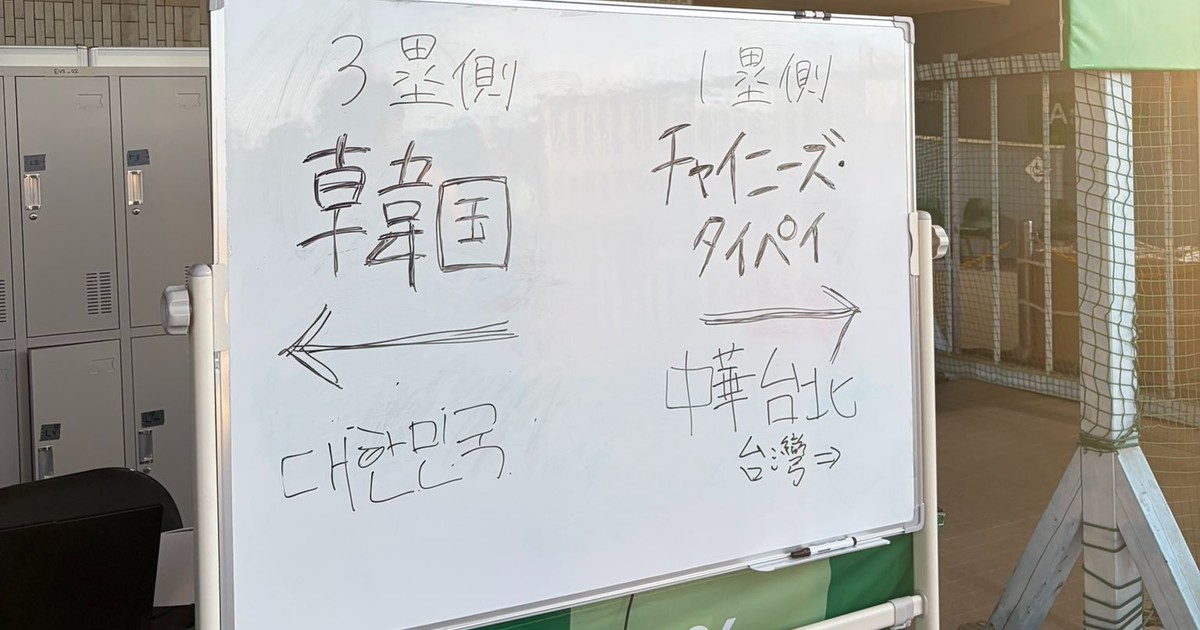 3塁側
韓国
←
대한민국
1塁側
チャイニーズ・
タイペイ
→
中華台北
台湾⇒